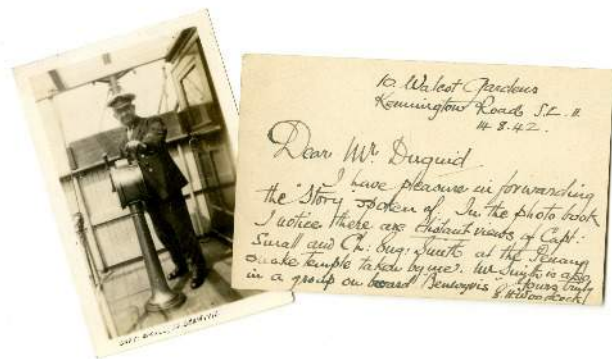 10. Walcot Gardens
Kennington Road S.E. 11.
14.8.42.
Dear Mr. Duguid
I have pleasure in forwarding
the "Story" spoken of. In the photo book
I notice there are distant views of Capt:
Small and Ch: Eng: Smith at the Penang
snake temple taken by me. Mr Smith is also
in a group on board Benvoyris. Yours truly
S. H. Woodcock
CAPT. SMALL,